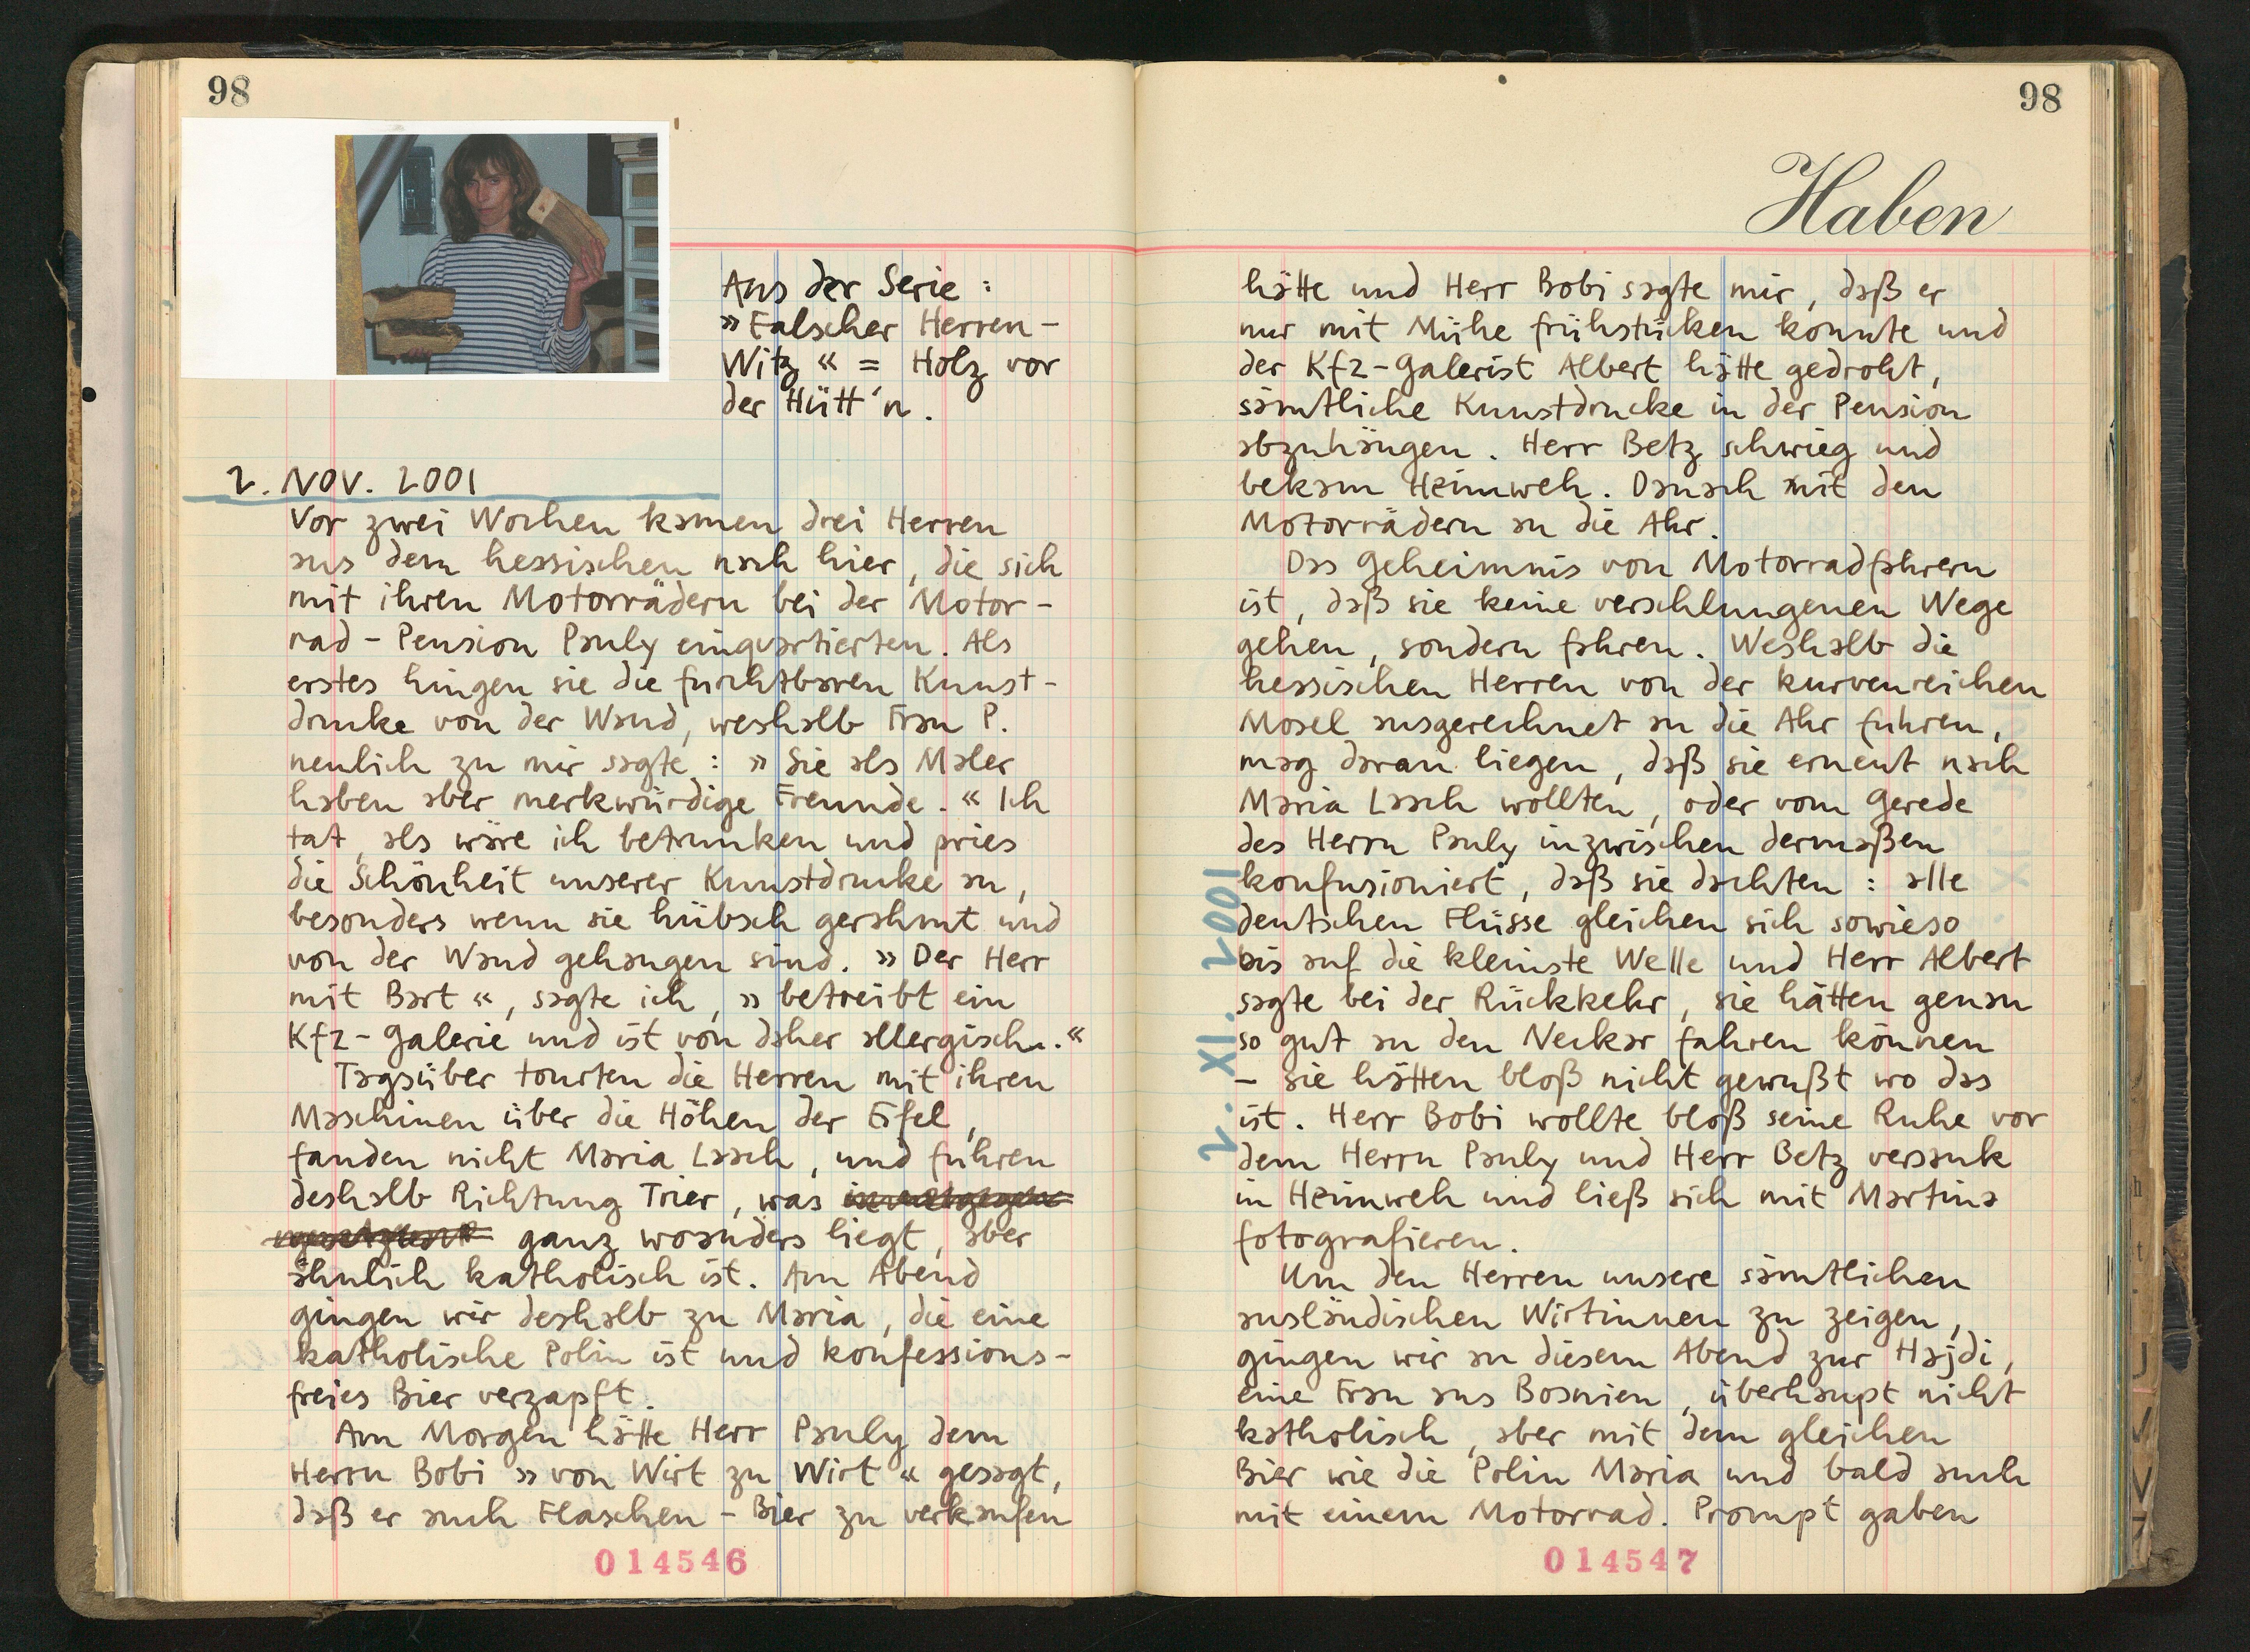 98
Aus der Serie :
» Falscher Herren -
Witz « = Holz vor
der Hütt'n .
2. NOV. 2001
Vor zwei Wochen kamen drei Herren
aus dem hessischen nach hier , die sich
mit ihren Motorrädern bei der Motor -
rad - Pension Pauly einquartierten . Als
erstes hingen sie die furchtbaren Kunst -
drucke von der Wand , weshalb Frau P.
neulich zu mir sagte : » Sie als Maler
haben aber merkwürdige Freunde . « Ich
tat , als wäre ich betrunken und pries
die Schönheit unserer Kunstdrucke an ,
besonders wenn sie hübsch gerahmt und
von der Wand gehangen sind . » Der Herr
mit Bart « , sagte ich , » betreibt ein
Kfz - Galerie und ist von daher allergisch . «
Tagsüber tourten die Herren mit ihren
Maschinen über die Höhen der Eifel ,
fanden nicht Maria Laach , und fuhren
deshalb Richtung Trier , was
ganz woanders liegt , aber
ähnlich katholisch ist . Am Abend
gingen wir deshalb zu Maria , die eine
katholische Polin ist und konfessions -
freies Bier verzapft .
Am Morgen hätte Herr Pauly dem
Herrn Bobi » von Wirt zu Wirt « gesagt ,
daß er auch Flaschen - Bier zu verkaufen
014546
98
Haben
hätte und Herr Bobi sagte mir , daß er
nur mit Mühe frühstücken konnte und
der Kfz - Galerist Albert hätte gedroht ,
sämtliche Kunstdrucke in der Pension
abzuhängen . Herr Betz schwieg und
bekam Heimweh . Danach mit den
Motorrädern an die Ahr .
Das Geheimnis von Motorradfahrern
ist , daß sie keine verschlungenen Wege
gehen , sondern fahren . Weshalb die
hessischen Herren von der kurvenreichen
Mosel ausgerechnet an die Ahr fuhren ,
mag daran liegen , daß sie erneut nach
Maria Laach wollten , oder vom Gerede
des Herrn Pauly inzwischen dermaßen
konfusioniert , daß sie dachten : alle
deutschen Flüsse gleichen sich sowieso
bis auf die kleinste Welle und Herr Albert
sagte bei der Rückkehr , sie hätten genau
so gut an den Neckar fahren können
- sie hätten bloß nicht gewußt wo das
ist . Herr Bobi wollte bloß seine Ruhe vor
dem Herrn Pauly und Herr Betz versank
in Heimweh und ließ sich mit Martina
fotografieren .
Um den Herren unsere sämtlichen
ausländischen Wirtinnen zu zeigen ,
gingen wir an diesem Abend zur Hajdi ,
eine Frau aus Bosnien , überhaupt nicht
katholisch , aber mit dem gleichen
Bier wie die Polin Maria und bald auch
mit einem Motorrad . Prompt gaben
2. XI. 2001
014547